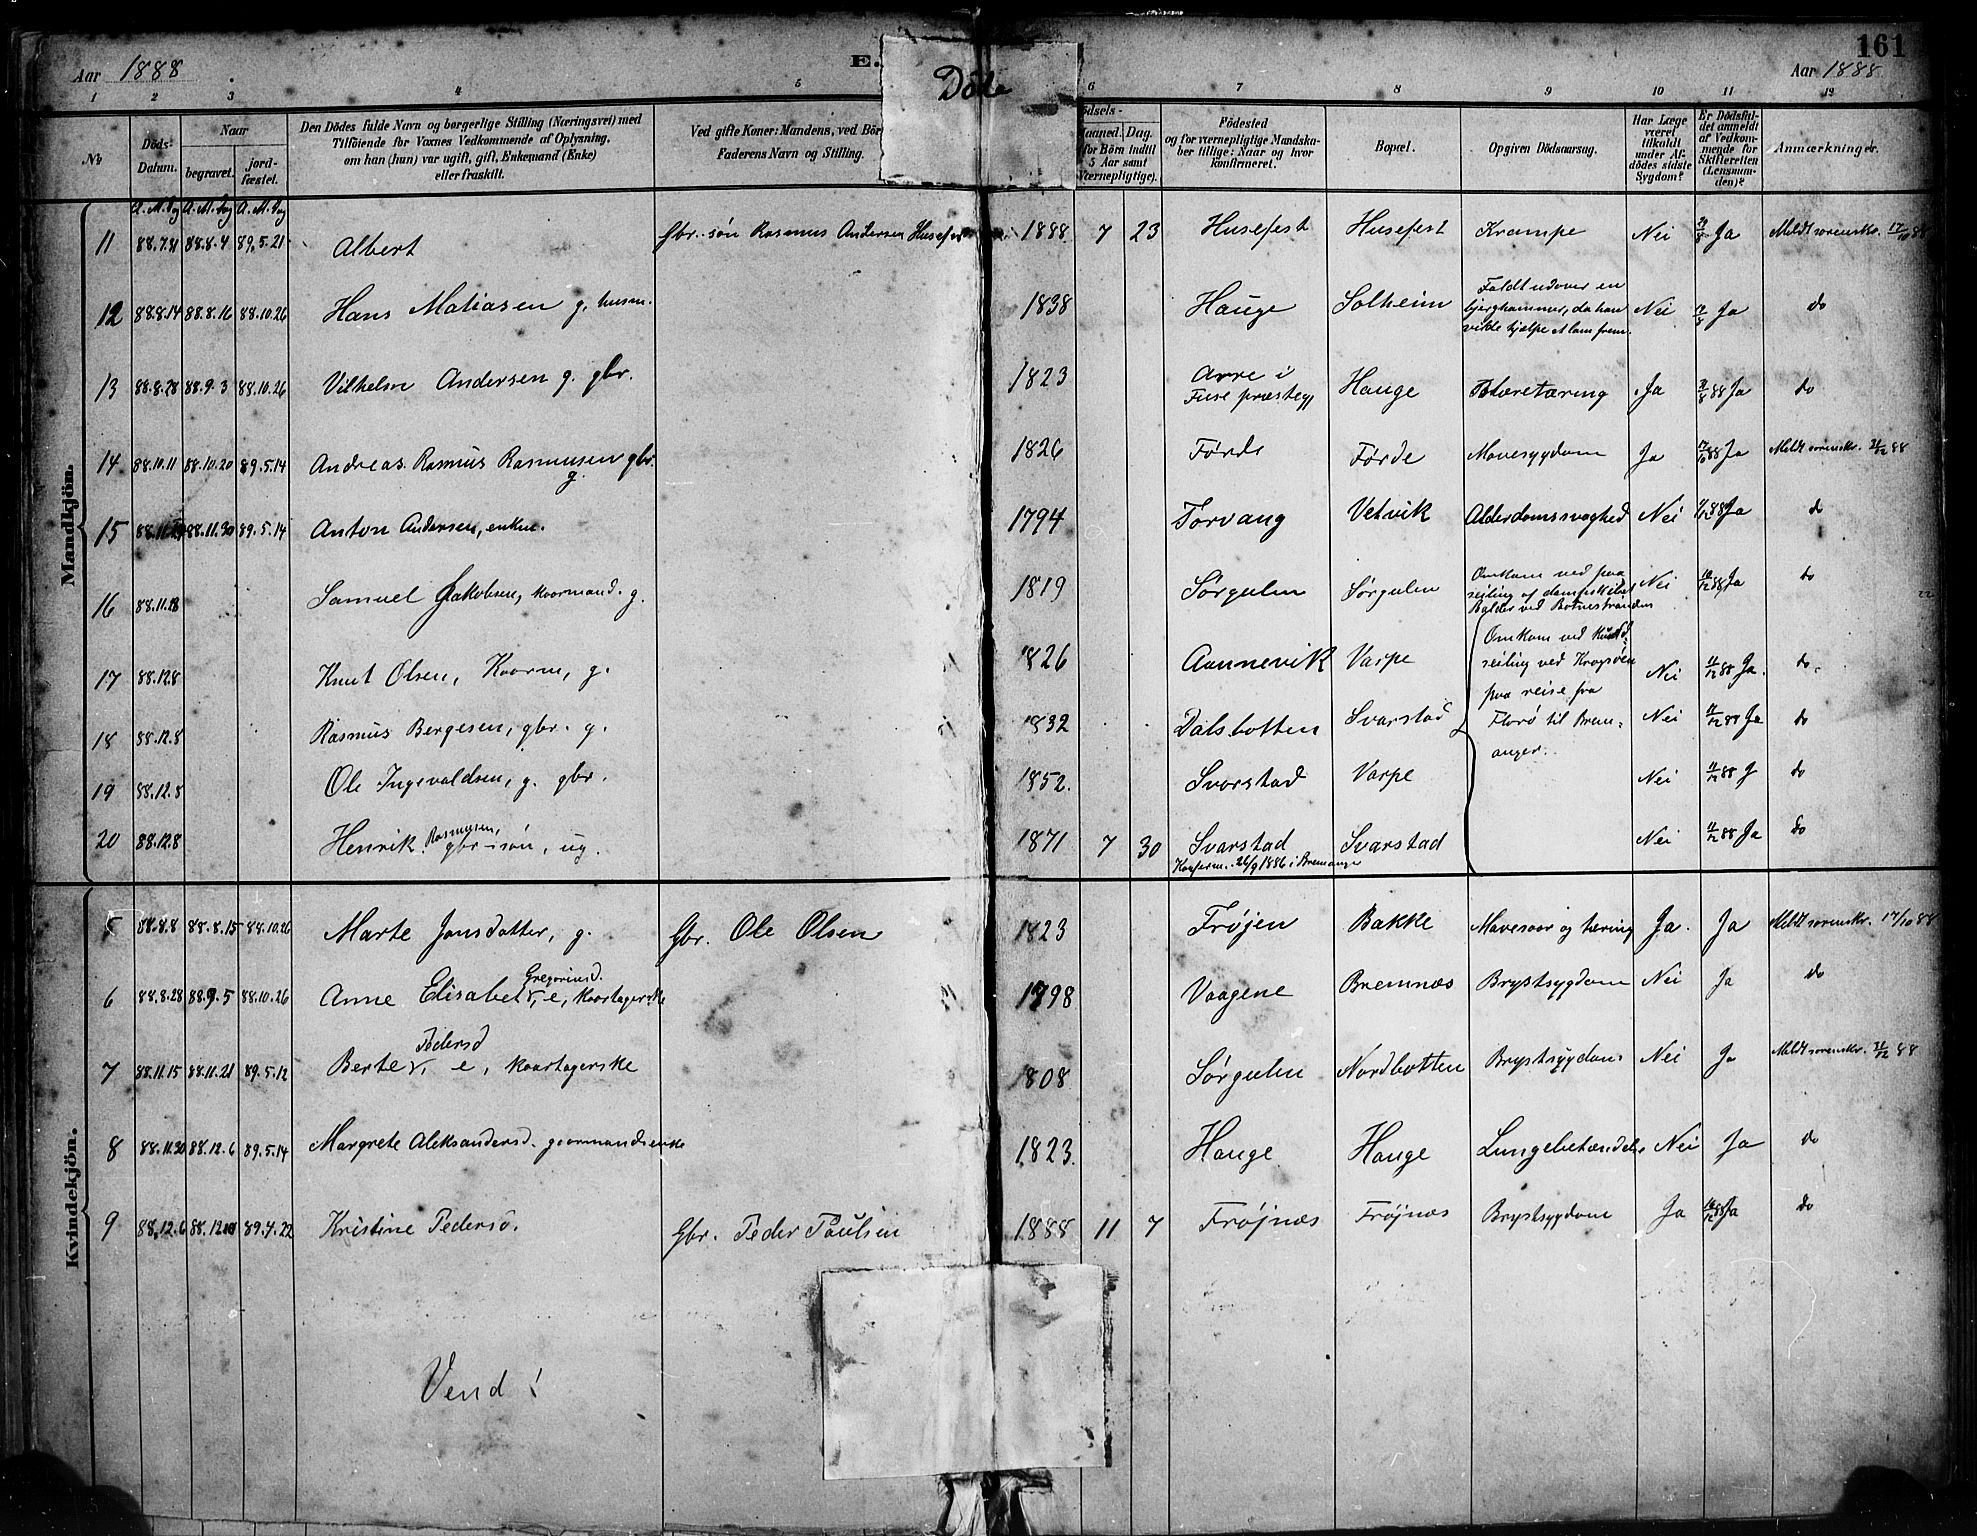 161
Aar 1888 E. Döde Aar 1888
1 2 3 4 5 6 7 8 9 10 11 12
No
Döds-Datum.
Naar
begravet.
jord-fæstet.
Den Dödes fulde Navn og borgerlige Stilling (Næringsvei) med
Tilföiende for Voxnes Vedkommende af Oplysning,
om han (hun) var ugift, gift, Enkemand (Enke)
eller fraskilt.
Ved gifte Koner: Mandens, ved Bör
Faderens Navn og Stilling.
ödsels-
Maaned. Dag.
(for Börn indtil
5 Aar samt
Værnepligtige).
Födested
og for værnepligtige Mandska-
ber tillige: Naar og hvor
konfirmeret.
Bopæl.
Opgiven Dödsaarsag.
Har Læge
været
tilkaldt
under Af-
dödes sidste
Sygdom?
Er Dödsfal-
det anmeldt
af Vedkom-
mende for
Skifteretten
(Lensman-
den)?
Anmærkninger.
Mandkjön.
A. M. Dag A. M. Dag A. M. Dag
11 88.7.31 88.8.4 89.5.21 Albert Gbr.-søn Rasmus Andersen Husefest 1888 7 23 Husefest Husefest Krampe Nei Ja Meldt sorenskr. 17/10 88
12 88.8.14 88.8.16 88.10.26 Hans Matiasen g. husm. 1838 Hauge Solheim Faldt udover en
bjerghammer, da han
vilde hjælpe et lam frem. Nei Ja do
13 88.8.28 88.9.3 88.10.26 Vilhelm Andersen g. gbr. 1823 Arre i
Fuse præstegj Hauge Blæretæring Ja 88 Ja do
14 88.10.11 88.10.20 89.5.14 Andreas Rasmus Rasmusen gbr.
g. 1826 Førde Førde Mavesygdom Ja 88 Ja Meldt sorenskr. 31/12 88
15 88.11.30 89.5.14 Anton Andersen, enkm. 1794 Torvang Vetvik Alderdomssvaghed Nei 88 Ja do
16 88.11.18 Samuel Jakobsen, kaarmand. g. 1819 Sørgulen Sørgulen Omkom ved paa
seiling af dampskibet
Balder ved Botnestranden Nei 88 Ja do
17 88.12.8 Knut Olsen, Kaarm, g. 1826 Aannevik Varpe Omkom ved
seiling ved
paa reise fra
Florø til Brem-
anger. Nei 11/12 88 Ja. do.
18 88.12.8 Rasmus Bergesen, gbr. g. 1832 Dalsbotten Svarstad Nei 11/12 88 Ja do
19 88.12.8 Ole Ingevaldsen, g. gbr. 1852. Svarstad Varpe Nei 11/12 88 J do
20 88.12.8 Henrik Rasmusen, gbr-søn, ug. 1871 7 30 Svarstad Svarstad Nei 11/12 88 Ja do
Konfirm. 26/9 1886 i Bremanger
Kvindekjön.
5 88.8.8 88.8.15 88.10.26 Marte Jonsdatter, g. Gbr. Ole Olsen 1823 Frøjen Bakke Mavesaar og tæring Ja. Ja Meldt sorenskr. 17/10 88
6 88.8.28 88.9.5 88.10.26 Anne Elisabet Gregoriusd. e, kaartagerske 1798 Vaagene Bremnæs Brystsygdom Nei Ja do
7 88.11.15 88.11.21 89.5.12 Berte Pedersd e, kaartagerske 1808 Sørgulen Nordbotten Brystsygdom Nei Ja Meldt sorenskr. 31/12 88
8 88.11.30 88.12.6 89.5.14 Margrete Aleksandersd. gaarmandsenke 1823. Hauge Hauge Lungebetændelse Nei Ja do
9 88.12.6 89.4.22 Kristine Pedersd. Gbr. Peder Paulsen 1888 11 7 Frøjnæs Frøjnæs Brystsygdom Ja 88 Ja do
Vend!